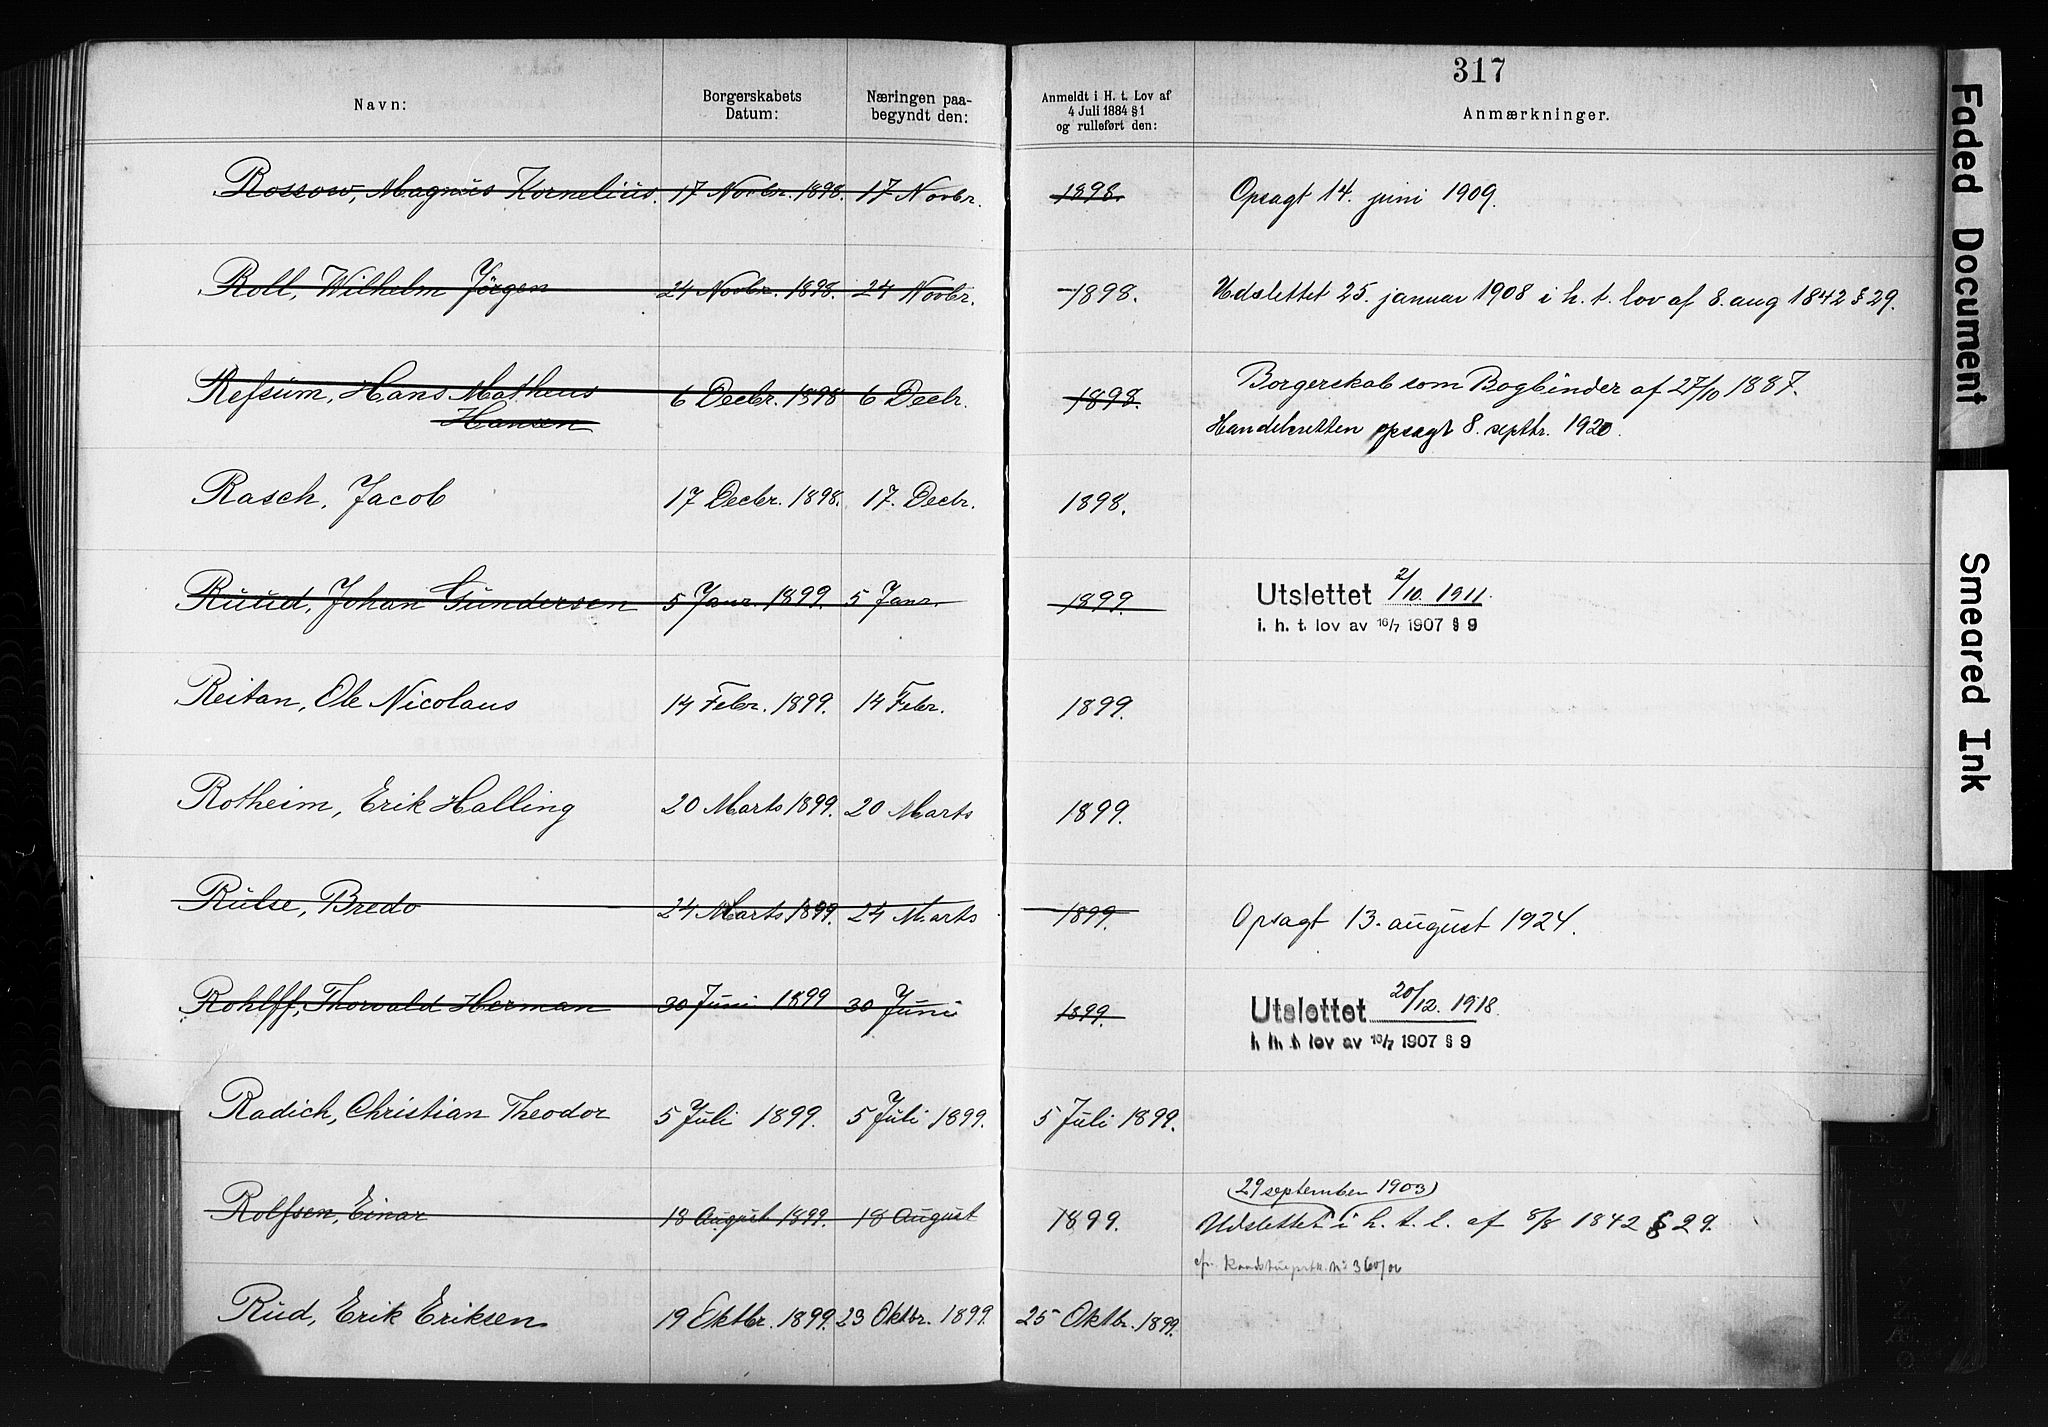 317
Navn: Borgerskabets Datum: Næringen paa-begyndt den: Anmeldt i H. t. Lov af 4 Juli 1884 § 1 og rulleført den: Anmærkninger.
Rossow, Magnus Kornelius. 17 Novbr. 1898. 17 Novbr. 1898. Opsagt 14. juni 1909.
Roll, Wilhelm Jörgen 24 Novbr. 1898. 24 Novbr. 1898. Udslettet 25. januar 1908 i h. t. lov af 8. aug 1842 § 29.
Refsum, Hans Matheus 6 Decbr. 1898 6 Decbr. 1898. Borgerskab som Bogbinder af 27/10 1887.
Hansen Handelsretten opsagt 8. septbr. 1920.
Rasch, Jacob 17 Decbr. 1898. 17. Decbr. 1898.
Ruud, Johan Gundersen 5 Janr. 1899. 5 Janr. 1899. Utslettet 2/10. 1911.
i. h. t. lov av 16/7 1907 § 9
Reitan, Ole Nicolaus 14 Febr. 1899. 14 Febr. 1899.
Rotheim, Erik Halling 20 Marts 1899. 20 Marts 1899.
Rulse, Bredo 24 Marts 1899. 24 Marts 1899. Opsagt 13. august 1924.
Rohlff, Thorvald Herman 30 Juni 1899 30 Juni 1899. Utslettet 20/12. 1918.
i. h. t. lov av 16/7 1907 § 9
Radich, Christian Theodor 5 Juli 1899. 5 Juli 1899. 5 Juli 1899.
(29 september 1903)
Rolfsen, Einar 18 August 1899. 18 August 1899. Udslettet i h. t. l. af 8/8 1842 § 29.
360/06
Rud, Erik Eriksen 19 Oktbr. 1899. 23 Oktbr. 1899. 25 Oktbr. 1899.
Faded Document
Smeared Ink